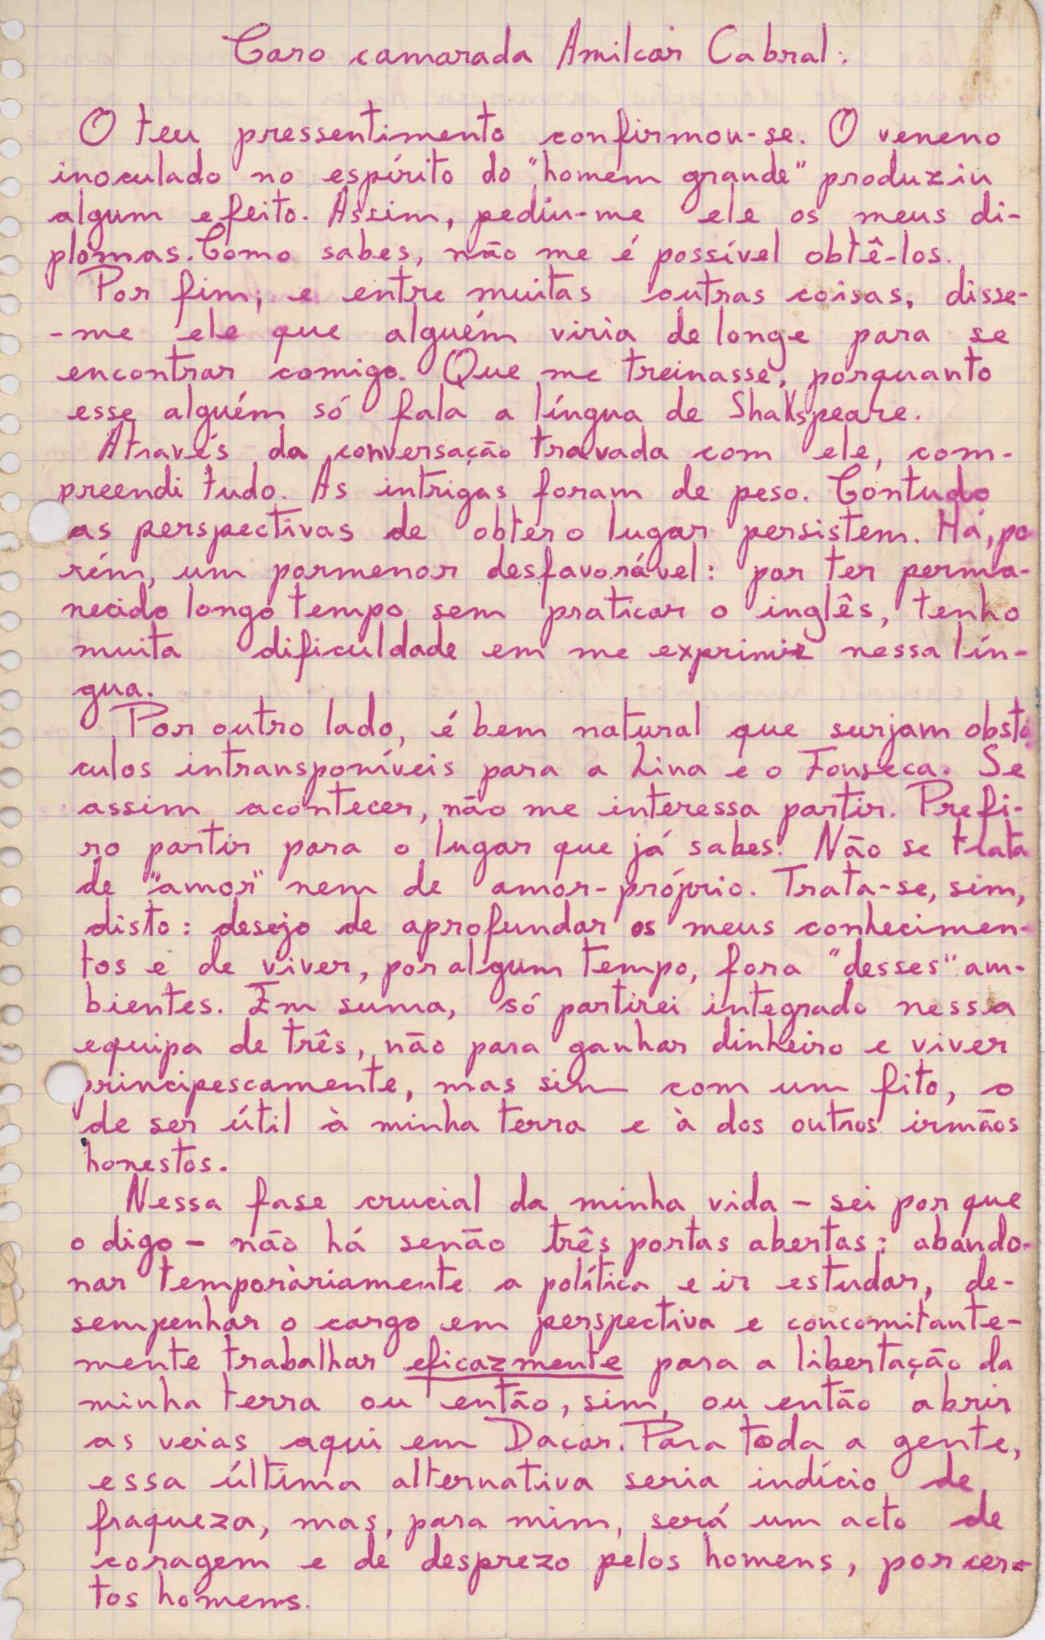 Caro camarada Amilcar Cabral:
O teu pressentimento confirmou-se. O veneno
inoculado no espírito do "homem grande" produziu
algum efeito. Assim, pediu-me ele os meus di-
plomas. Como sabes, não me é possível obtê-los.
Por fim, e entre muitas outras coisas, disse-
-me ele que alguém viria de longe para se
encontrar comigo. Que me treinasse, porquanto
esse alguém só fala a língua de Shakspeare.
Através da conversação travada com ele, com-
preendi tudo. As intrigas foram de peso. Contudo
as perspectivas de obter o lugar persistem. Há, po
rém, um pormenor desfavorável: por ter perma-
necido longo tempo sem praticar o inglês, tenho
muita dificuldade em me exprimir nessa lín-
gua.
Por outro lado, é bem natural que surjam obstá
culos intransponíveis para a Lina e o Fonseca. Se
assim acontecer, não me interessa partir. Prefi-
ro partir para o lugar que já sabes. Não se trata
de "amor" nem de amor-próprio. Trata-se, sim,
disto: desejo de aprofundar os meus conhecimen-
tos e de viver, por algum tempo, fora "desses" am-
bientes. Em suma, só partirei integrado nessa
equipa de três, não para ganhar dinheiro e viver
principescamente, mas sim com um fito, o
de ser útil à minha terra e à dos outros irmãos
honestos.
Nessa fase crucial da minha vida - sei por que
o digo - não há senão três portas abertas: abando-
nar temporàriamente a política e ir estudar, de-
sempenhar o cargo em perspectiva e concomitante-
mente trabalhar eficazmente para a libertação da
minha terra ou então, sim, ou então abrir
as veias aqui em Dacar. Para toda a gente,
essa última alternativa seria indício de
fraqueza, mas, para mim, será um acto de
coragem e de desprezo pelos homens, por cer-
tos homens.